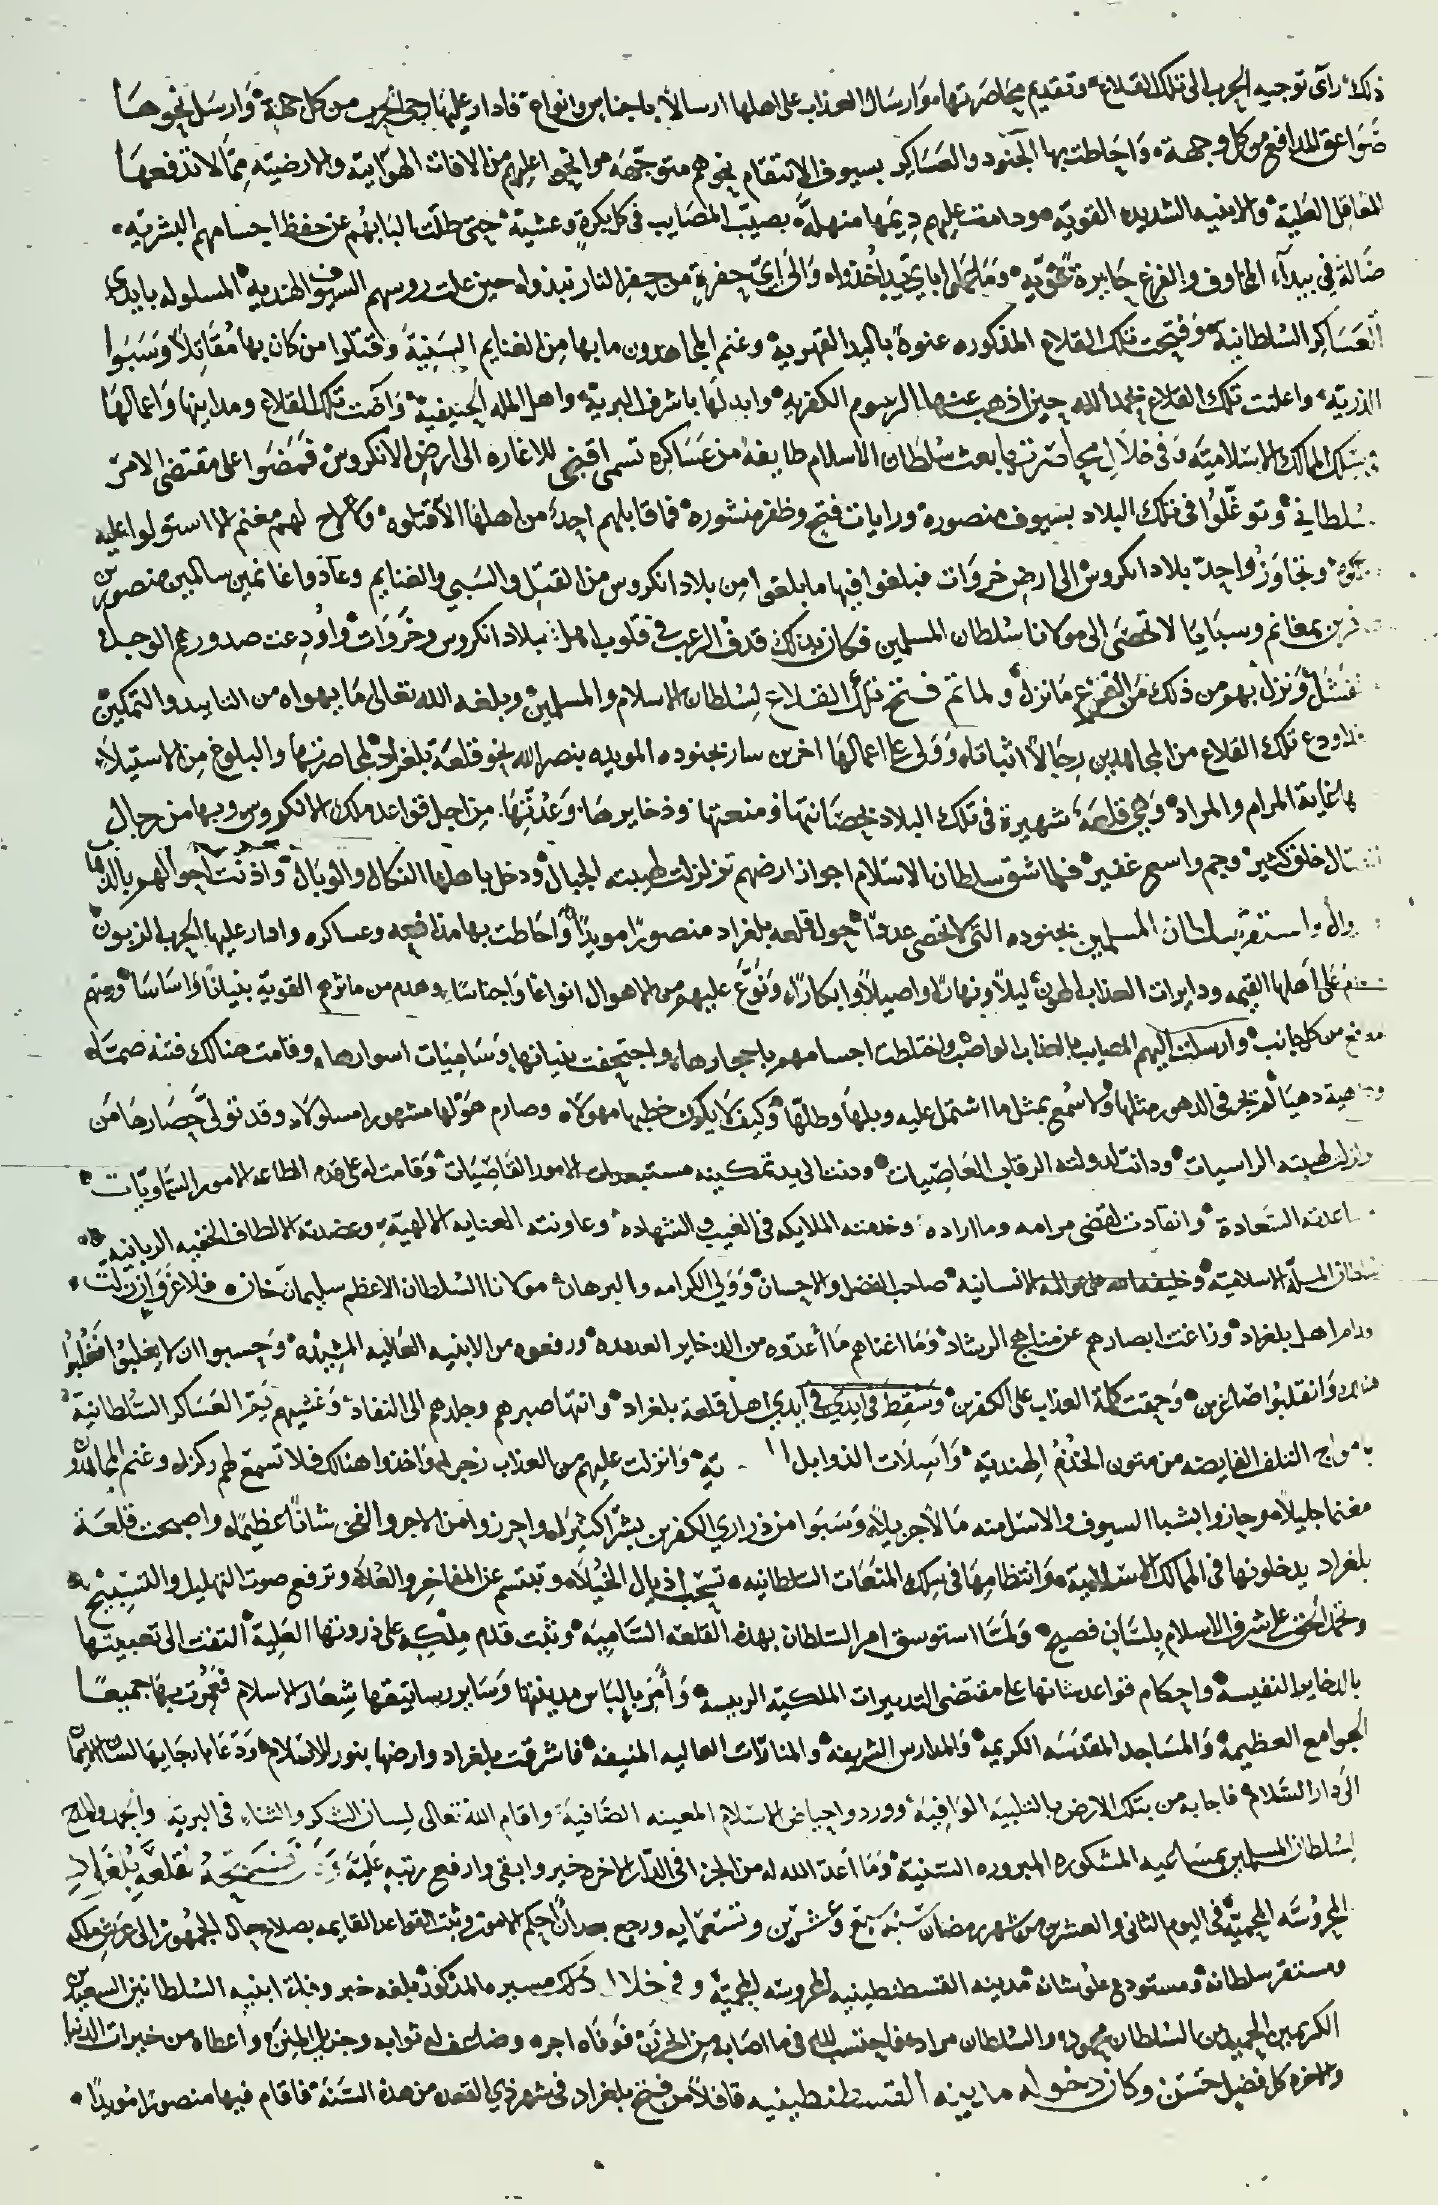 ذلك رآى توجيه الحرب الى تلك القلاع وتقديم محاصرتها وارسال العذاب على اهلها ارسالا باجناس وانواع فادار عليها رحى الحرب من كل جهة وارسل نحوها
صواعق المدافع من كل وجهة واحاطت بها الجنود والعساكر بسيوف الانتقام نحوهم متوجهه من الافات الهوائية والارضيه مما لا تدفعها
المعاقل العلية والابنيه الشديده القويه ودامت عليهم ديمها منهلة بصيب المصايب فى كل بكرة وعشية حتى ظلت البابهم عن حفظ اجسامهم البشريه
ضالة في بيدآء المخاوف والفزع حايرة وما علموا باي يد اخذوا والى اي حفرة من حفر النار نبذوا حين علت روسهم السيوف الهنديه المسلوله بايدى
العساكر السلطانية وفتحت تلك القلاع المذكوره عنوة باليد القهرية وغنم المجاهدون ما بها من الغنايم السنية وقتلوا من كان بها مقاتلا وسبوا
الذريه واعلنت تلك القلاع بحمد الله حين اذهب عنها الرسوم الكفريه وابدلها باشرف البرية واهل المله الحنيفية واضت تلك القلاع ومداينها واعمالها
بسلك الممالك الاسلاميه وفى خلال محاصرتها بعث سلطان الاسلام طايفة من عساكره تسمى اقنجى للاغاره الى ارض الانكروس فمضوا على مقتضى الامر
سلطاني وتوغلوا فى تلك البلاد بسيوف منصوره ورايات فتح وظفر منشوره فما قابلهم احد من اهلها الا قتلوه ولا لاح لهم مغنم الا استولوا عليه
وتجاوزوا حد بلاد انكروس الى ارض خروات فبلغوا فيها ما بلغوا من بلاد انكروس من القتل والسبي والغنايم وعادوا غانمين سالمين منصورين
بمغانم وسبايا لا تحصى الى مولانا سلطان المسلمين فكان بذلك قذف الرعب فى قلوب اهل بلاد انكروس وخروات واودعت صدورهم الوجل
ونزل بهم من ذلك من الفزع ما نزل ولما تم فتح تلك القلاع لسلطان الاسلام والمسلمين وبلغه الله تعالى ما يهواه من التاييد والتمكين
اودع تلك القلاع من المجاهدين رجالا اثباتا وولى على اعمالها اخرين سار بجنوده المويده بنصر الله نحو قلعة بلغراد لمحاصرتها والبلوغ من الاستيلاء
بها غاية المرام والمراد وهى قلعة شهيرة فى تلك البلاد بحصانتها ومنعتها وذخايرها وعدتها من اجل قواعد ملك الانكروس وبها من رجال
خلق كثير وجم واسع غفير فلما شق سلطان الاسلام اجواز ارضهم تزلزلت لهيبته الجبال ودخل باهلها النكال والوبال واذنت احوالهم بالذهاب
والـ واستقر سلطان المسلمين بجنوده التى لا تحصى عددا حول قلعه بلغراد منصورا مويدا واحاطت بها مدافعه وعساكره وادار عليها الحرب الزبون
على اهلها القيمه ودايرات العذاب الهون ليلا ونهارا واصيلا وابكارا ونوع عليهم من الاهوال انواعا واجناسا وهدم من ماثرهم القويه بنيانا واساسا
من كل جانب وارسلت اليهم المصايب بالعذاب الواصب واختلطت اجسامهم باحجارها واجتحفت بنيانها وساميات اسوارها وقامت هنالك فتنة صماء
دهيا لم يجر فى الدهور مثلها ولا سمع بمثل ما اشتمل عليه وبلها وطلها وكيف لا يكون خطبها مهولا وصارم هولها مشهورا مسلولا وقد تولى حصارها من
لهيبته الراسيات ودانت لدولته الرقاب العاصيات ودنت اليد تمكينه مستبعدات الامور القاصيات وقامت له على قدم الطاعه الامور السماويات
السعادة وانقادت لقضى مرامه وما اراده وخدمته الملايكه فى الغيب والشهاده وعاونته العنايه الالهية وعضدته الالطاف الخفيه الربانيه
الملة الاسلامية وخليفة الله على عوالمه الانسانيه صاحب الفضل والاحسان وولي الكرامه والبرهان مولانا السلطان الاعظم سليمان خان فلا غرو ان زلت
اهل بلغراد وزاغت ابصارهم عن مناهج الرشاد وما اغناهم ما اعدوه من الذخاير العديده ورفعوه من الابنيه العاليه المشيده وحسبوا ان لا يغلبوا فغلبوا
وانقلبوا صاغرين وحقت كلمة العذاب على الكفرين وسقط فى ايدي اهل قلعة بلغراد وانتها صبرهم وجلدهم الى النفاد وغشيهم يم العساكر السلطانية
بامواج التلف الفايضه من متون الخذم الهندية واسلات الذوابل وانزلت عليهم من العذاب رجزا واخذوا هنالك فلا تسمع لهم ركزا وغنم المجاهدون
مغنما جليلا وحازوا بشبا السيوف والاسل منه مالا جزيلا وسبوا من ذراري الكفرين بشرا كثيرا واحرزوا من الاجر والفخر شانا عظيما واصبحت قلعة
بلغراد بدخلونها فى الممالك الاسلامية وانتظامها فى سلك المنعات السلطانيه تسحب اذيال الخيلاء وتبتسم عن المفاخر والعلاء وترفع صوت التهليل والتسبيح
وتحمد الحق على شرف الاسلام بلسان فصيح ولما استوسق امر السلطان بهذه القلعه الساميه وثبت قدم ملكه على ذروتها العلية التفت الى تعبيتها
بالذخاير النفيسة واحكام قواعد شانها على مقتضى التدبيرات الملكية الرييسه وامر بالباس مدينتها وساير رساتيقها شعار الاسلام فعمرت بها جميعا
الجوامع العظيمة والمساجد المقدسه الكريمه والمدارس الشريفه والمنارات العاليه المنيفه فاشرقت بلغراد وارضها بنور الاسلام ودعا بارجايها لسان الايمان
الى دار السلام فاجابه من بتلك الارض بالتلبيه الوافية ووردوا حياض الاسلام المعينه الصافية واقام الله تعالى لسان الشكر والثناء فى البريه
لسلطان المسلمين بمساعيه المشكوره المبروره السنية وما اعد الله له من الجزا فى الدار الاخره خير وابقى وارفع رتبه علية فتحه لقلعة بلغراد
المحروسه المحمية فى اليوم الثانى والعشرين من شهر رمضان سنة سبع وعشرين وتسعمايه ورجع بعد ان احكم الامور وثبت القواعد القايمه بصلاح حال الجمهور الى عرش ملكه
ومستقر سلطانه ومستودع على شانه مدينه القسطنطينيه المحروسه المحمية وفى خلال ذلك مسيره المذكور بلغه خبر وفاة ابنيه السلطانين السعيدين
الكريمين الحميدين السلطان محمود والسلطان مراد فاحتسب لله فى ما اصابه من الحزن فوفاه اجره وضاعف له ثوابه وجزيل المنن واعطاه من خيرات الدنيا
والاخره كل فضيل حسن وكان دخوله مدينة القسطنطينيه قافلا من فتح بلغراد فى شهر ذي القعده من هذه السنة فاقام فيها منصورا مويدا